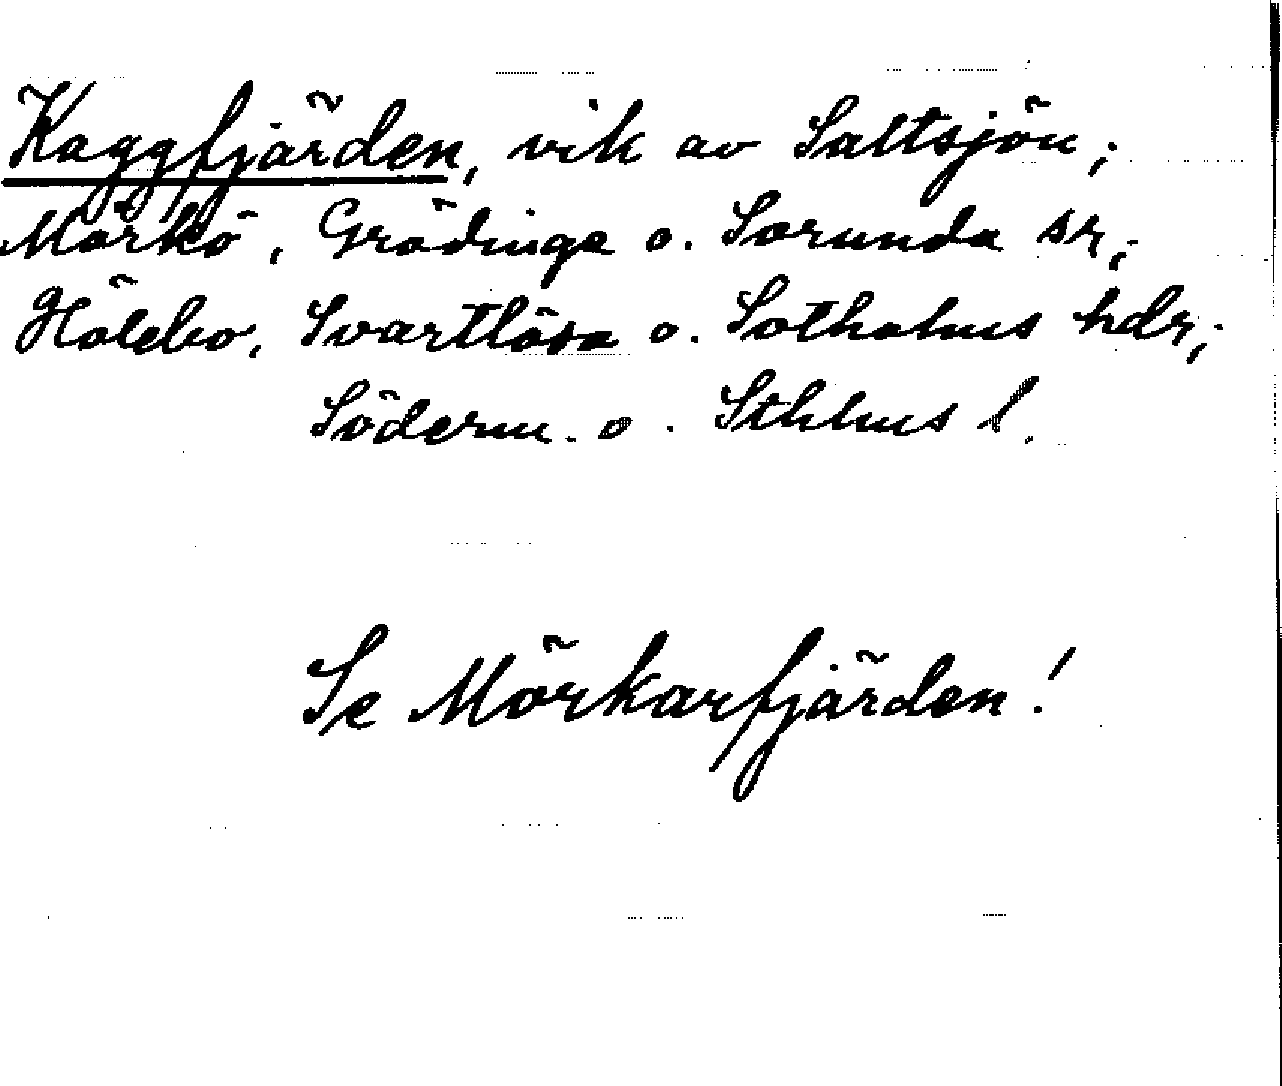 Kaggfjärden, vik av Saltsjön;
Mörkö, Grödinge o. Sorunda sr;
Hölebo, Svartlösa o. Sotholms hdr;
Söderm. o. Sthlms l.
Se Mörkarfjärden!